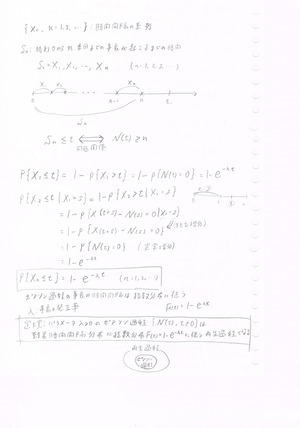 {X_n, n=1,2,…}: 時間間隔の系列
S_n: 時刻0から n番目までの事象が起こるまでの時間
S_n = X_1, X_2, …, X_n (n=1,2,…)
X_1 X_2 X_n
0 1 2 … n-1 n t
S_n
S_n ≤ t ⟺ N(t) ≥ n
P{X_1≤t} = 1-P{X_1>t} = 1-P{N(t)=0} = 1-e^{-λt}
P{X_2≤t|X_1=s} = 1-P{X_2>t|X_1=s}
= 1-P{N(t+s)-N(s)=0|X_1=s}
= 1-P{N(t+s)-N(s)=0}
= 1-P{N(t)=0} (定常増分)
= 1-e^{-λt}
P{X_n≤t} = 1-e^{-λt} (n=1,2,…)
ポアソン過程の事象の時間間隔は指数分布に従う
F(t)=1-e^{-λt}
パラメータ λ>0 のポアソン過程 {N(t), t≥0} は
指数分布 F(t)=1-e^{-λt} に従う再生過程である
再生過程
ポアソン過程